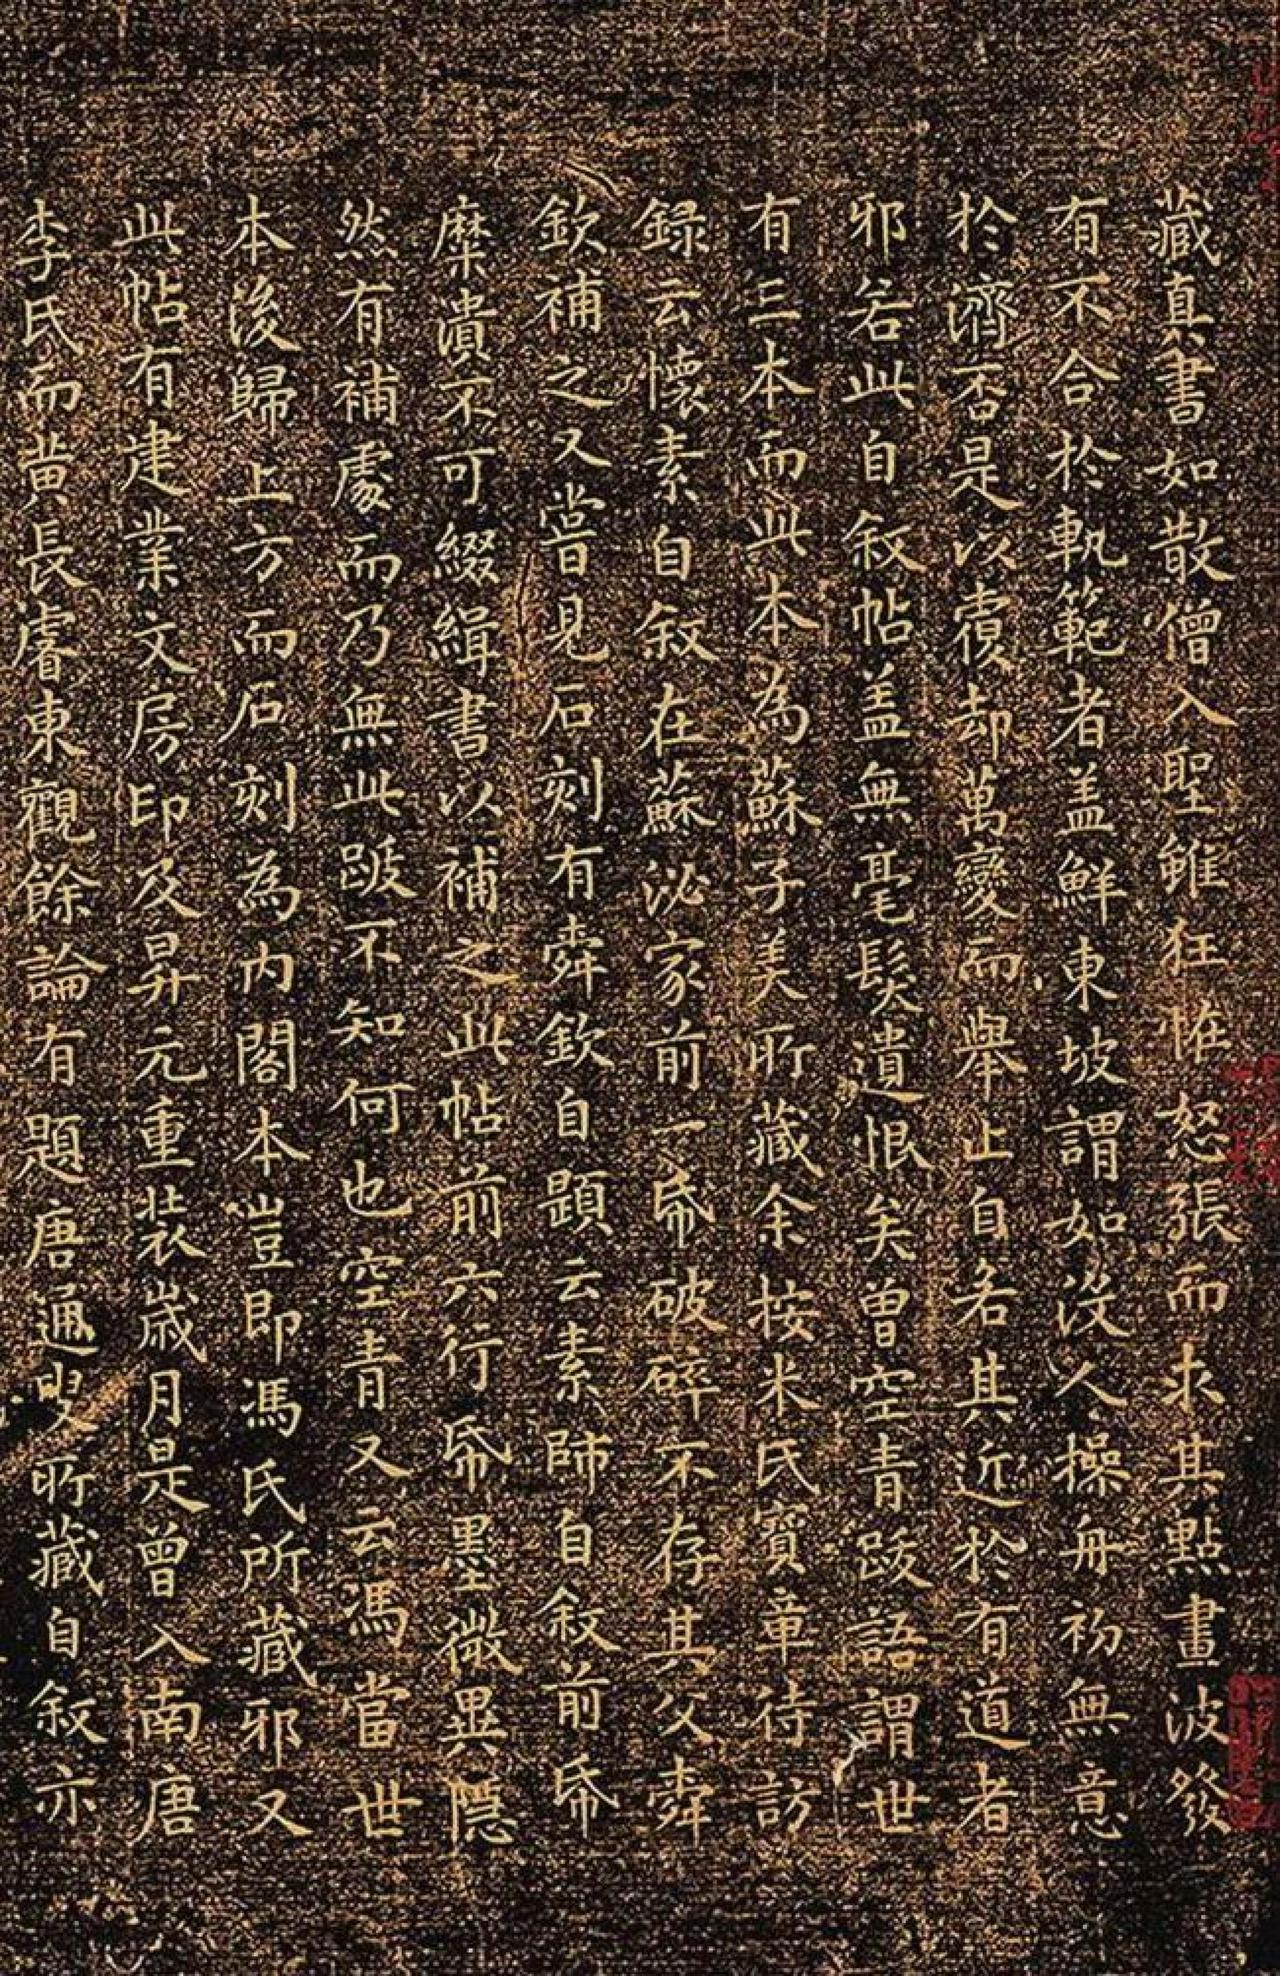 藏真書如散僧入聖雖狂怪怒張而求其點畫波發
有不合於軌範者盖鮮東坡謂如沒人操舟初無意
於濟否是以覆却萬變而舉止自若其近於有道者
邪若此自敘帖盖無毫髮遺恨矣曾空青跋語謂世
有三本而此本為蘇子美所藏余按米氏寶章待訪
錄云懷素自敘在蘇泌家前一帋破碎不存其父舜
欽補之又嘗見石刻有舜欽自題云素師自敘前帋
糜潰不可綴緝書以補之此帖前六行帋墨微異隱
然有補處而乃無此跋不知何也空青又云馮當世
本後歸上方而石刻為内閣本豈即馮氏所藏邪又
此帖有建業文房印及昇元重裝歲月是曾入南唐
李氏而黃長睿東觀餘論有題唐通叟所藏自敘亦